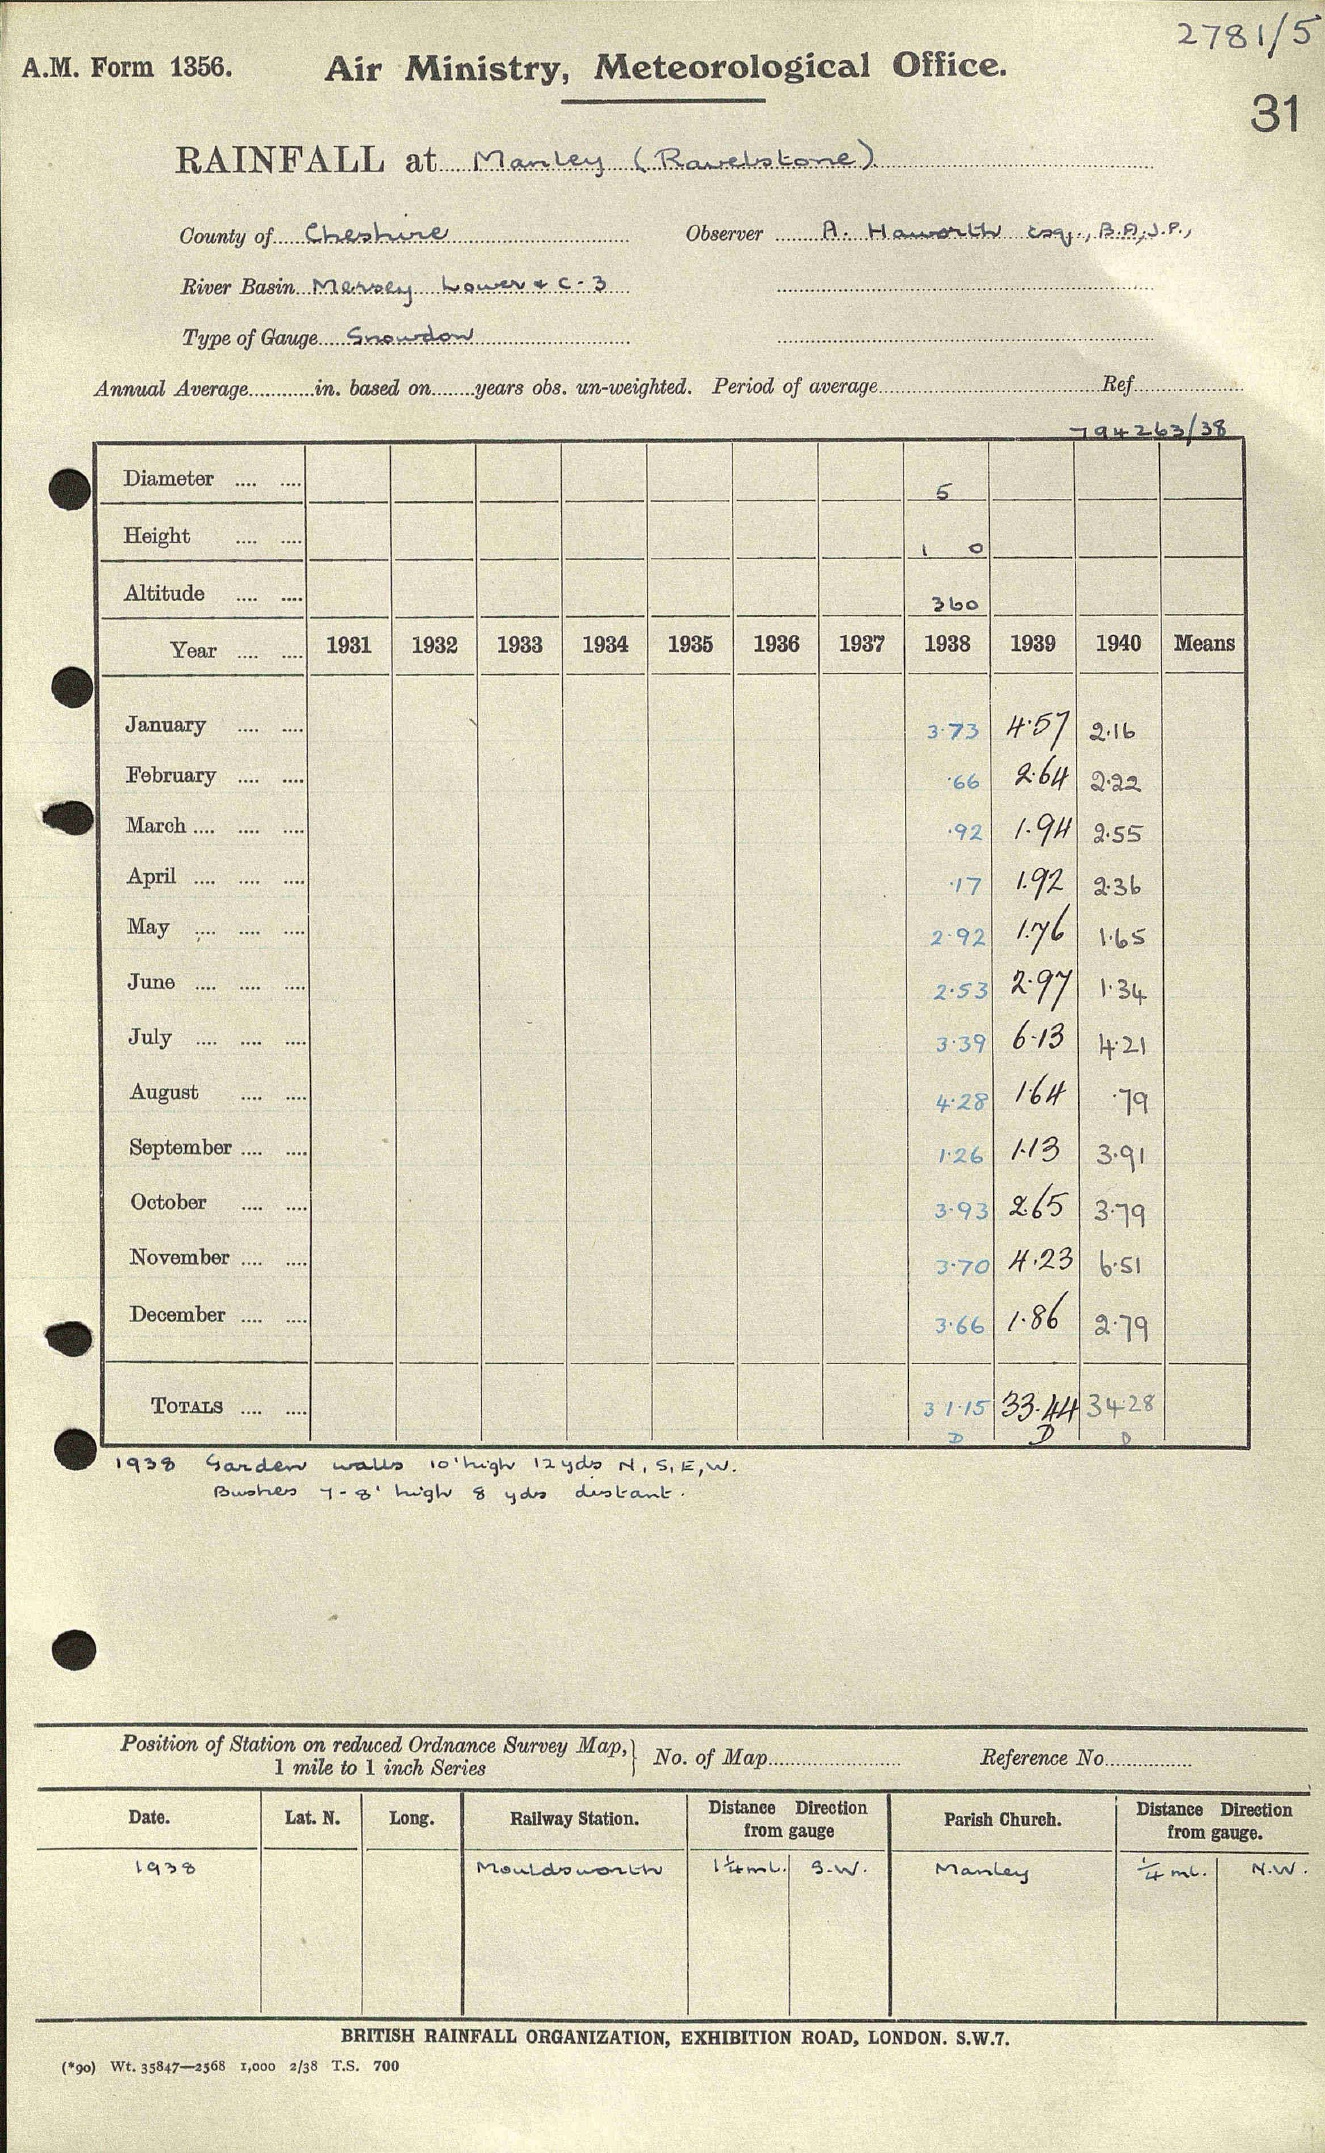 2781/5
A.M. Form 1356. Air Ministry, Meteorological Office.
31
RAINFALL at Manley (Ravelstone)
County of Cheshire Observer A. Haworth Esq., B.A., J.P.,
River Basin Mersey Lower & C-3
Type of Gauge Snowdon
Annual Average............in. based on.......years obs. un-weighted. Period of average............ Ref............
794263/38
Diameter .... .... 5
Height .... .... 1 0
Altitude .... .... 360
Year .... .... 1931 1932 1933 1934 1935 1936 1937 1938 1939 1940 Means
January .... .... 3·73 4·57 2·16
February .... .... ·66 2·64 2·22
March .... .... .... ·92 1·94 2·55
April .... .... .... ·17 1·92 2·36
May .... .... .... 2·92 1·76 1·65
June .... .... .... 2·53 2·97 1·34
July .... .... .... 3·39 6·13 4·21
August .... .... 4·28 1·64 ·79
September .... .... 1·26 1·13 3·91
October .... .... 3·93 2·65 3·79
November .... .... 3·70 4·23 6·51
December .... .... 3·66 1·86 2·79
TOTALS .... .... 31·15 33·44 34·28
D D D
1938 Garden walls 10' high 12 yds N, S, E, W.
Bushes 7-8' high 8 yds distant.
Position of Station on reduced Ordnance Survey Map, } No. of Map............ Reference No............
1 mile to 1 inch Series
Date. Lat. N. Long. Railway Station. Distance Direction from gauge Parish Church. Distance Direction from gauge.
1938 Mouldsworth 1¼ ml. S.W. Manley ¼ ml. N.W.
BRITISH RAINFALL ORGANIZATION, EXHIBITION ROAD, LONDON. S.W.7.
(*90) Wt. 35847—2568 1,000 2/38 T.S. 700